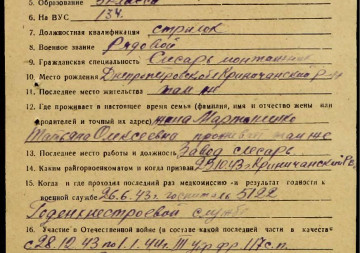 5. Образование
6. На ВУС 134.
7. Должностная квалификация стрелок
8. Военное звание Рядовой
9. Гражданская специальность Слесарь монтажник
10. Место рождения Днепропетровской Криничанский р-н
11. Последнее место жительства там же
12. Где проживает в настоящее время семья (фамилия, имя и отчество жены или
родителей и точный их адрес) жена
Татьяна Алексеевна там же
13. Последнее место работы и должность Завод слесарь
14. Каким райгорвоенкоматом и когда призван 1943 Криничанский Р
15. Когда и где проходил последний раз медкомиссию и результат годности к
военной службе 26.6.43г. госпиталь 5122
Годен к нестроевой службе
16. Участие в Отечественной войне (в составе какой последней части в качестве
с 28.12.43 по 1.1.44г. III Укр. фр. 117 с.п.